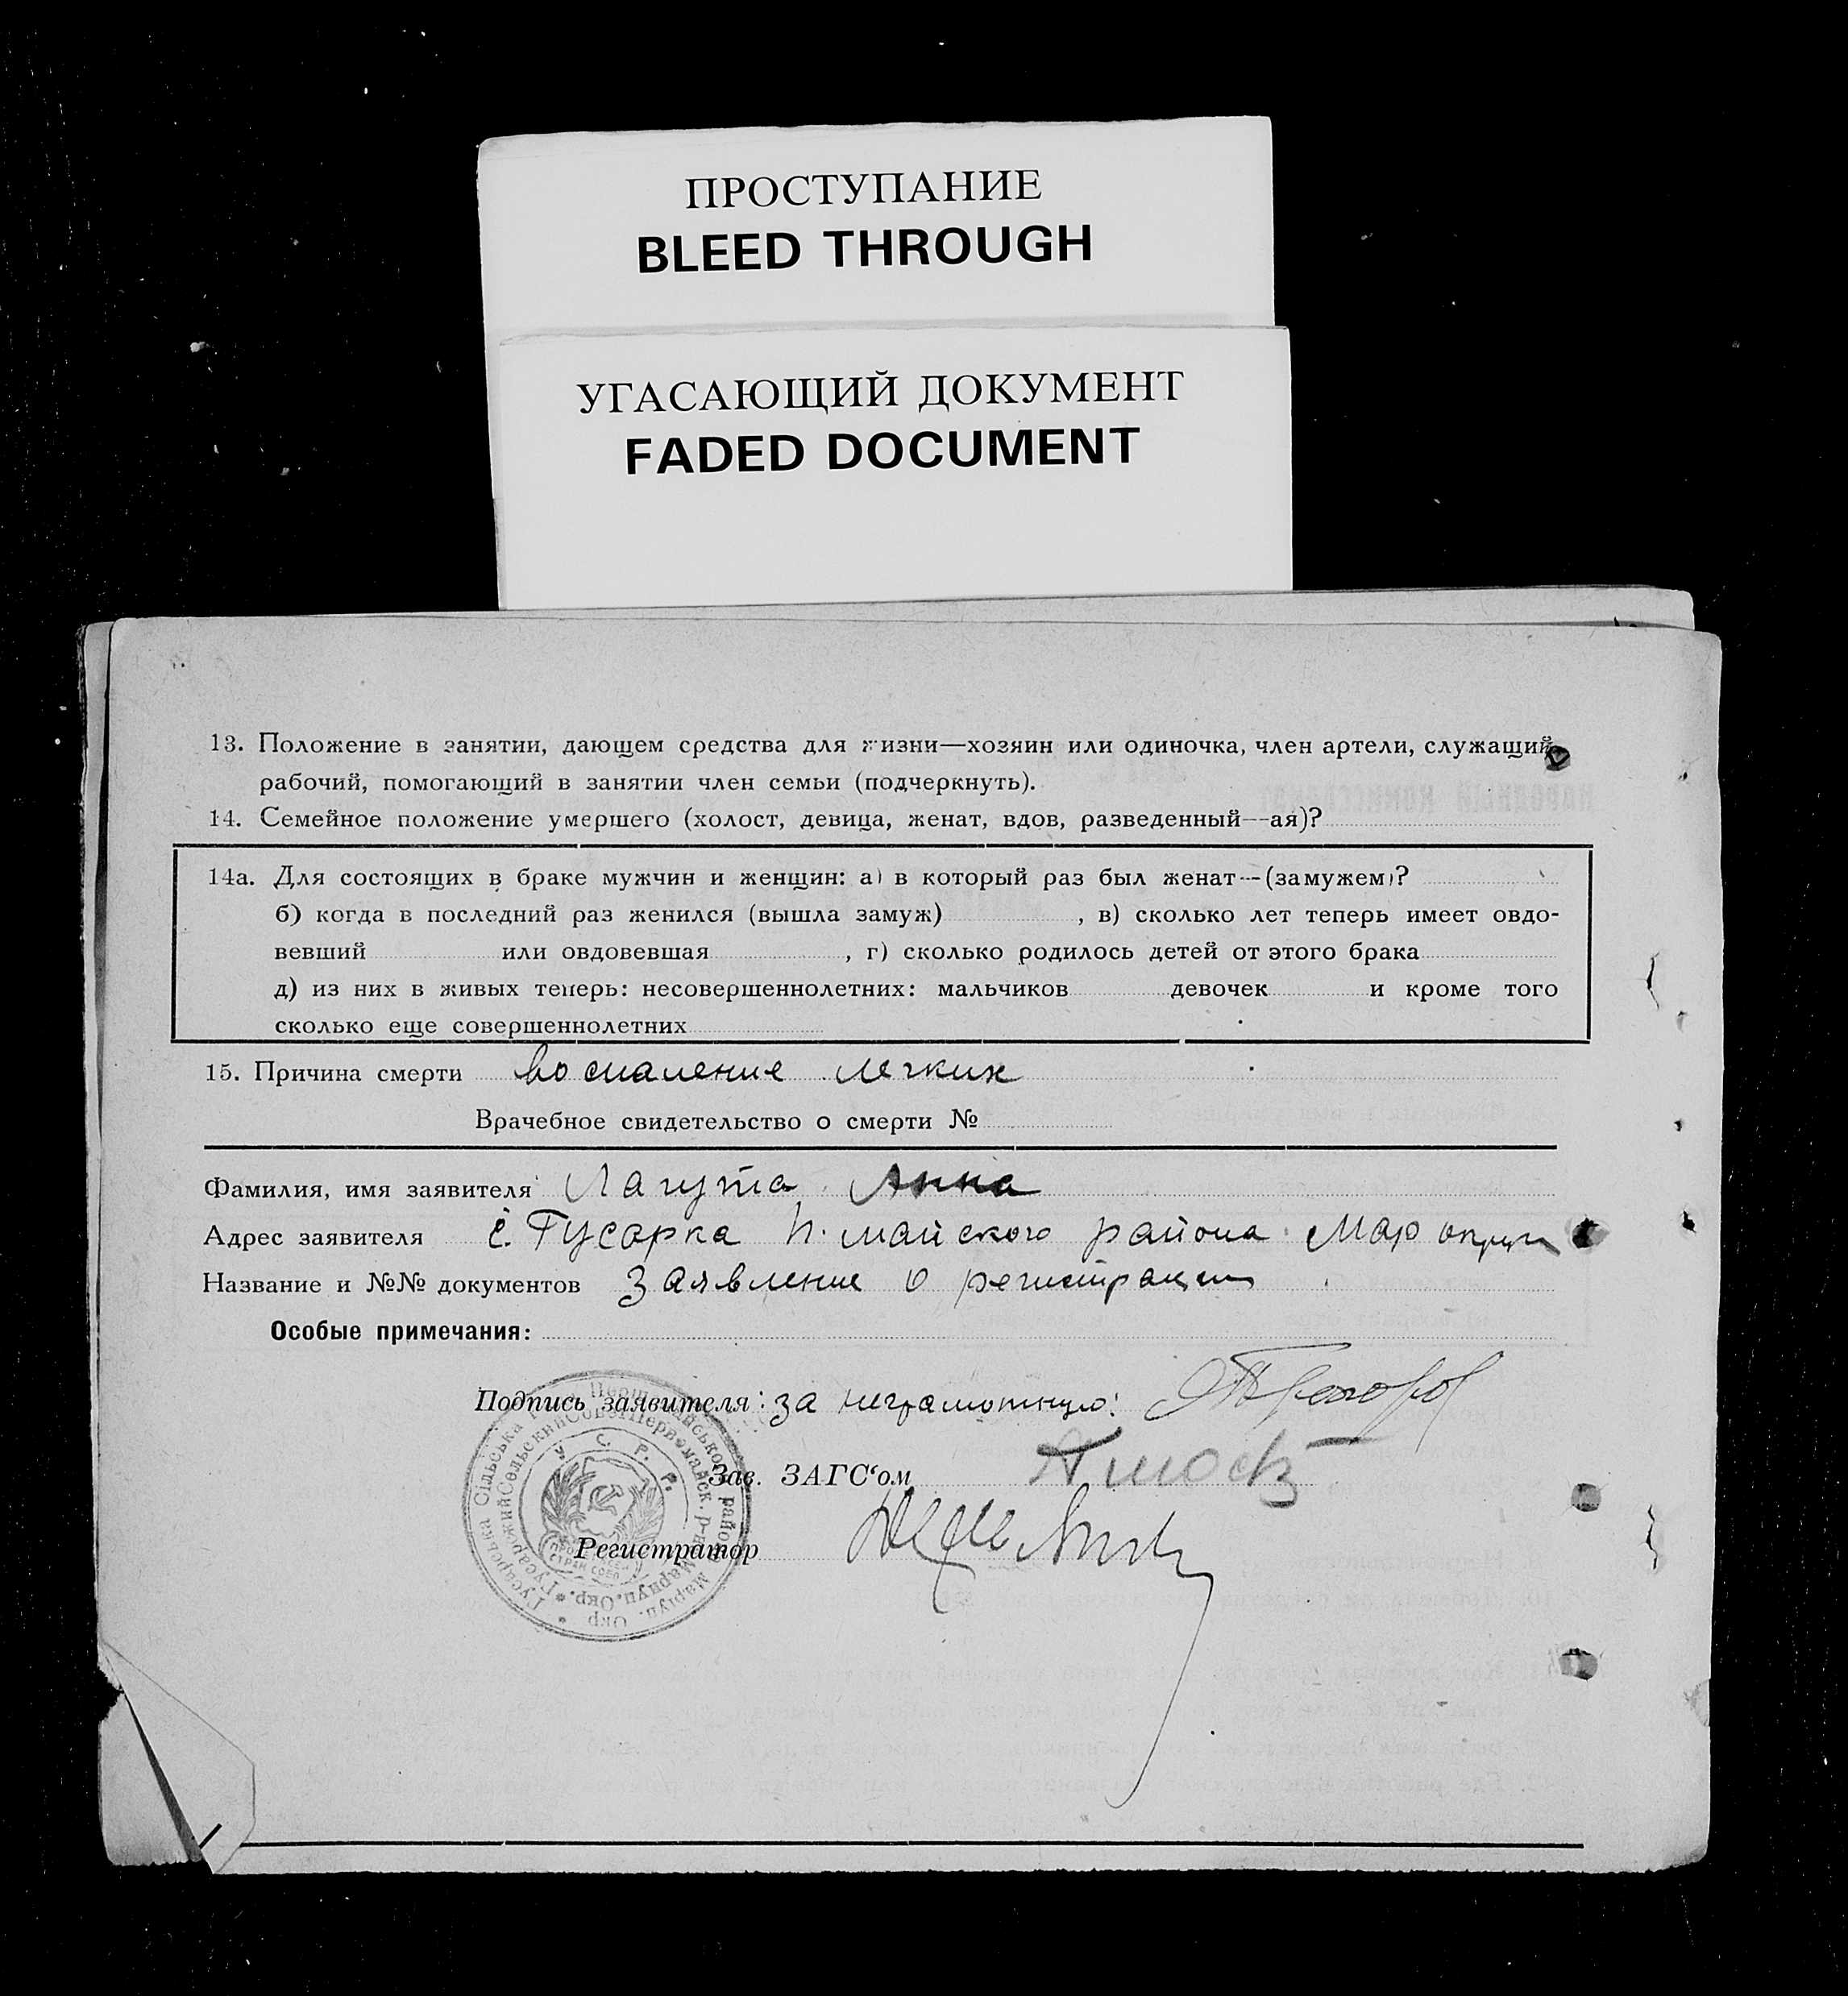 ПРОСТУПАНИЕ
BLEED THROUGH
УГАСАЮЩИЙ ДОКУМЕНТ
FADED DOCUMENT
13. Положение в занятии, дающем средства для жизни—хозяин или одиночка, член артели, служащий,
рабочий, помогающий в занятии член семьи (подчеркнуть).
14. Семейное положение умершего (холост, девица, женат, вдов, разведенный—ая)?
14а. Для состоящих в браке мужчин и женщин: а) в который раз был женат—(замужем)?
б) когда в последний раз женился (вышла замуж) , в) сколько лет теперь имеет овдо-
вевший или овдовевшая , г) сколько родилось детей от этого брака
д) из них в живых теперь: несовершеннолетних: мальчиков девочек и кроме того
сколько еще совершеннолетних
15. Причина смерти воспаление легких
Врачебное свидетельство о смерти №
Фамилия, имя заявителя Лагута Анна
Адрес заявителя с. Гусарка П. майского района Мар округи
Название и №№ документов Заявление о регистрации
Особые примечания:
Подпись заявителя: за неграмотную:
Зав. ЗАГС‘ом
Регистратор
У. С. Р. Р.